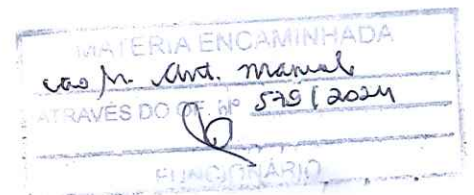 MATÉRIA ENCAMINHADA
ao Sr. Ant. Manoel
ATRAVÉS DO OF. Nº 579/2024
FUNCIONÁRIO